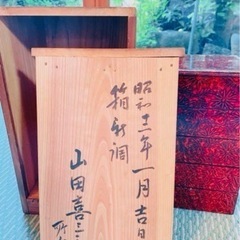 昭和十一年一月吉日
箱新調
山田喜三